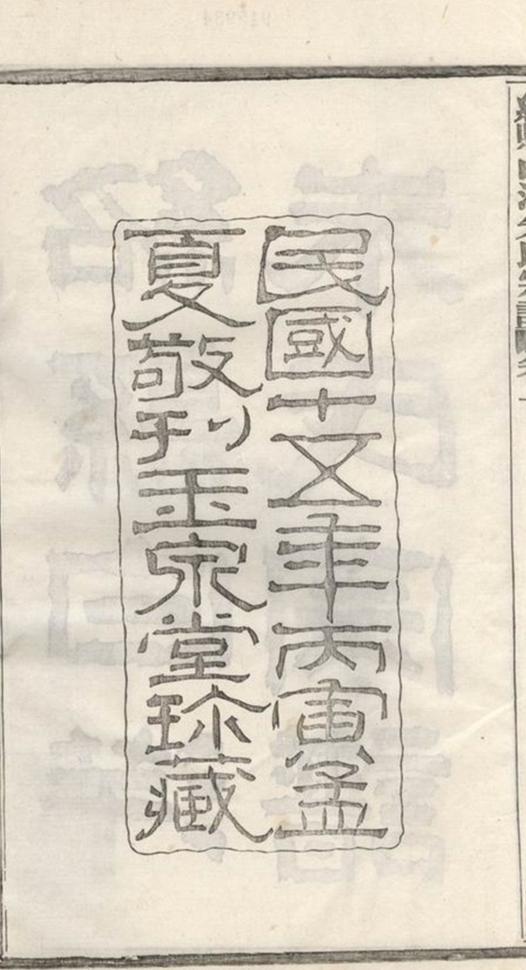 民國十五年丙寅孟
夏敬刊玉泉堂珎藏